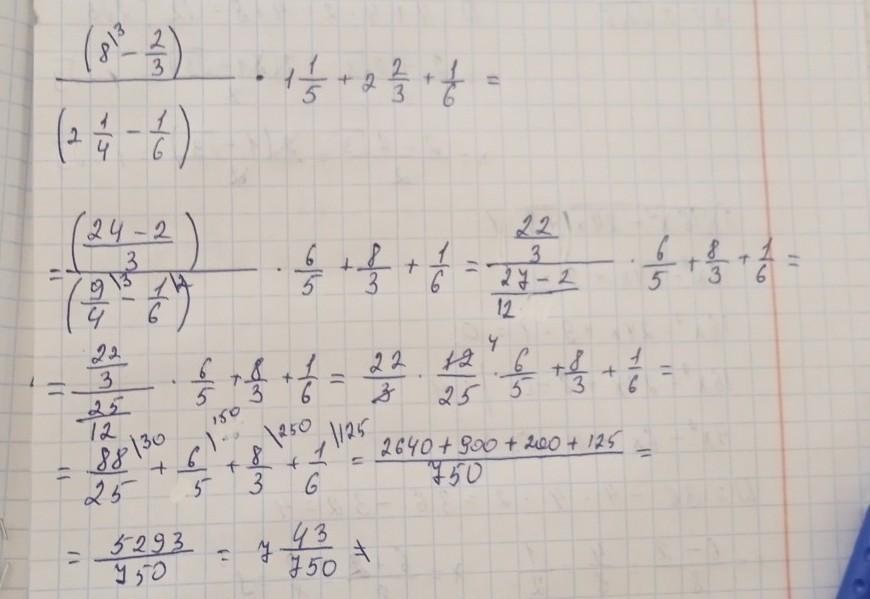 (8\3 - 2/3) / (2 1/4 - 1/6) · 1 1/5 + 2 2/3 + 1/6 =
= ((24 - 2)/3) / (9/4\3 - 1/6\2) · 6/5 + 8/3 + 1/6 = (22/3) / ((27 - 2)/12) · 6/5 + 8/3 + 1/6 =
= (22/3) / (25/12) · 6/5 + 8/3 + 1/6 = 22/3 · 12/25 4 · 6/5 + 8/3 + 1/6 =
= 88/25\30 + 6/5\150 + 8/3\250 + 1/6\125 = (2640 + 900 + 200 + 125)/750 =
= 5293/750 = 7 43/750